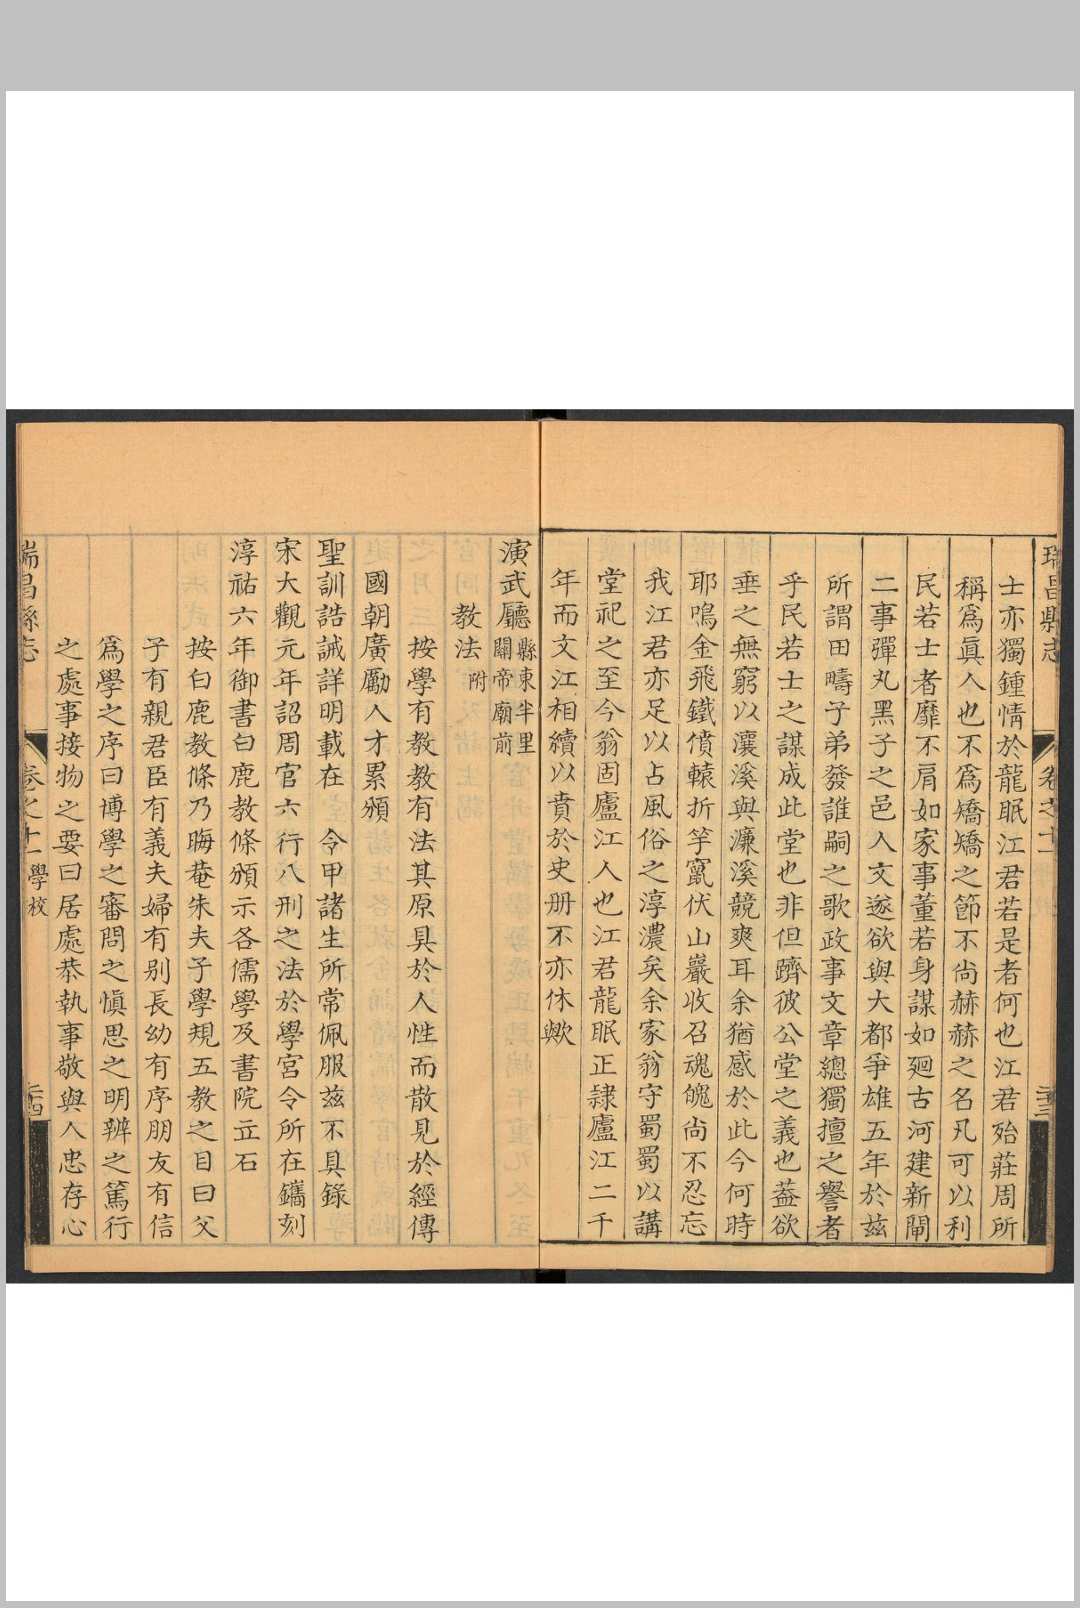 瑞昌縣志 卷之十二 二十三
士亦獨鍾情於龍眠江君若是者何也江君殆莊周所
稱爲眞人也不爲矯矯之節不尙赫赫之名凡可以利
民若士者靡不肩如家事董若身謀如廻古河建新閘
二事彈丸黑子之邑人文遂欲與大都爭雄五年於玆
所謂田疇子弟發誰嗣之歌政事文章總獨擅之譽者
乎民若士之謀成此堂也非但躋彼公堂之義也葢欲
垂之無窮以瀼溪與濂溪競爽耳余猶感於此今何時
耶鳴金飛鐵僨轅折竿竄伏山巖收召魂魄尙不忍忘
我江君亦足以占風俗之淳濃矣余家翁守蜀蜀以講
堂祀之至今翁固廬江人也江君龍眠正隷廬江二千
年而文江相續以賁於史册不亦休歟
演武廳縣東半里關帝廟前
教法附
按學有教教有法其原具於人性而散見於經傳
國朝廣勵人才累頒
聖訓誥誡詳明載在 令甲諸生所常佩服玆不具錄
宋大觀元年詔周官六行八刑之法於學宮令所在鑴刻
淳祐六年御書白鹿教條頒示各儒學及書院立石
按白鹿教條乃晦菴朱夫子學規五教之目曰父
子有親君臣有義夫婦有别長幼有序朋友有信
爲學之序曰博學之審問之愼思之明辨之篤行
之處事接物之要曰居處恭執事敬與人忠存心
瑞昌縣志 卷之十一 學校 二十四